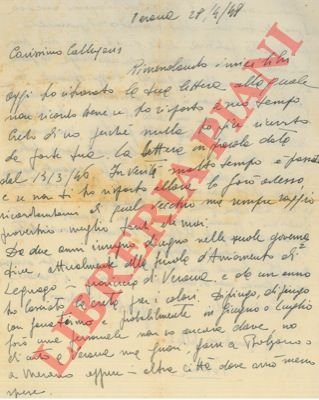 Verona 28/4/48
Carissimo Callegaris
Rimendando i miei libri
oggi ho ritrovato la tua lettera alla quale
non ricordo bene se ho risposto a suo tempo.
Credo di no perché nulla ho più ricevuto
da parte tua. La lettera in parola data
dal 13/3/46. In verità molto tempo è passato
e se non ti ho risposto allora lo farò adesso,
ricordandomi di quel vecchio ma sempre saggio
proverbio meglio tardi che mai.
Da due anni insegno disegno nelle scuole governa
tive, attualmente alla scuola d'Avviamento di
Legnago provincia di Verona. e da un anno
ho lasciato la creta per i colori. Dipingo, dipingo
con fanatismo e probabilmente in Giugno o Luglio
farò una personale non so ancora dove, no
di certo a Verona ma fuori. forse a Bolzano o
a Merano oppure in altra città dove avrò meno
spese.
LIBRERIA PIANI